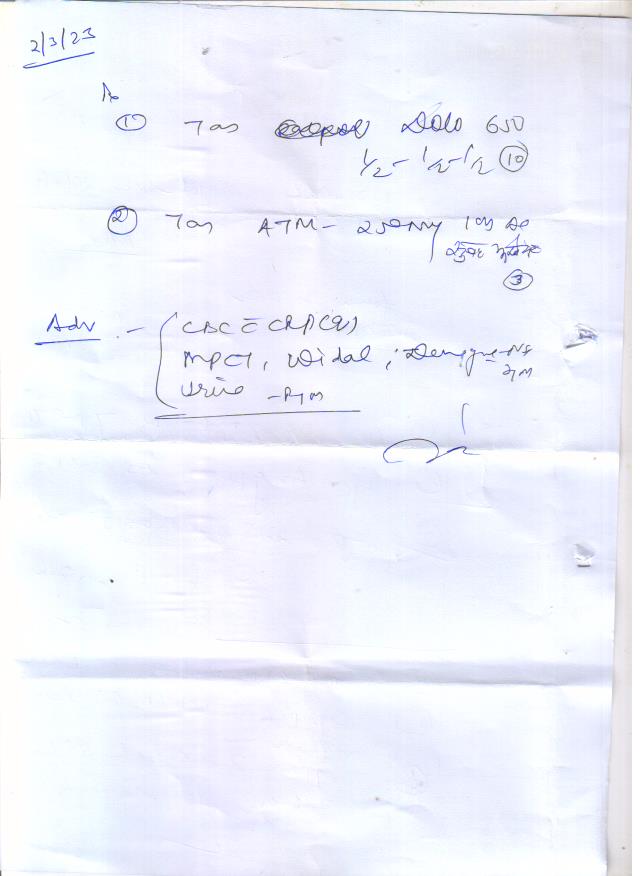 2/3/23
①
Tab Dolo 650
1/2 - 1/2 - 1/2 ⑩
② Tab ATM - 250mg 1
③
Adv :- CBC c̄ CRP(Q)
MPCT, Widal, Dengue - NS
Urine - R/M